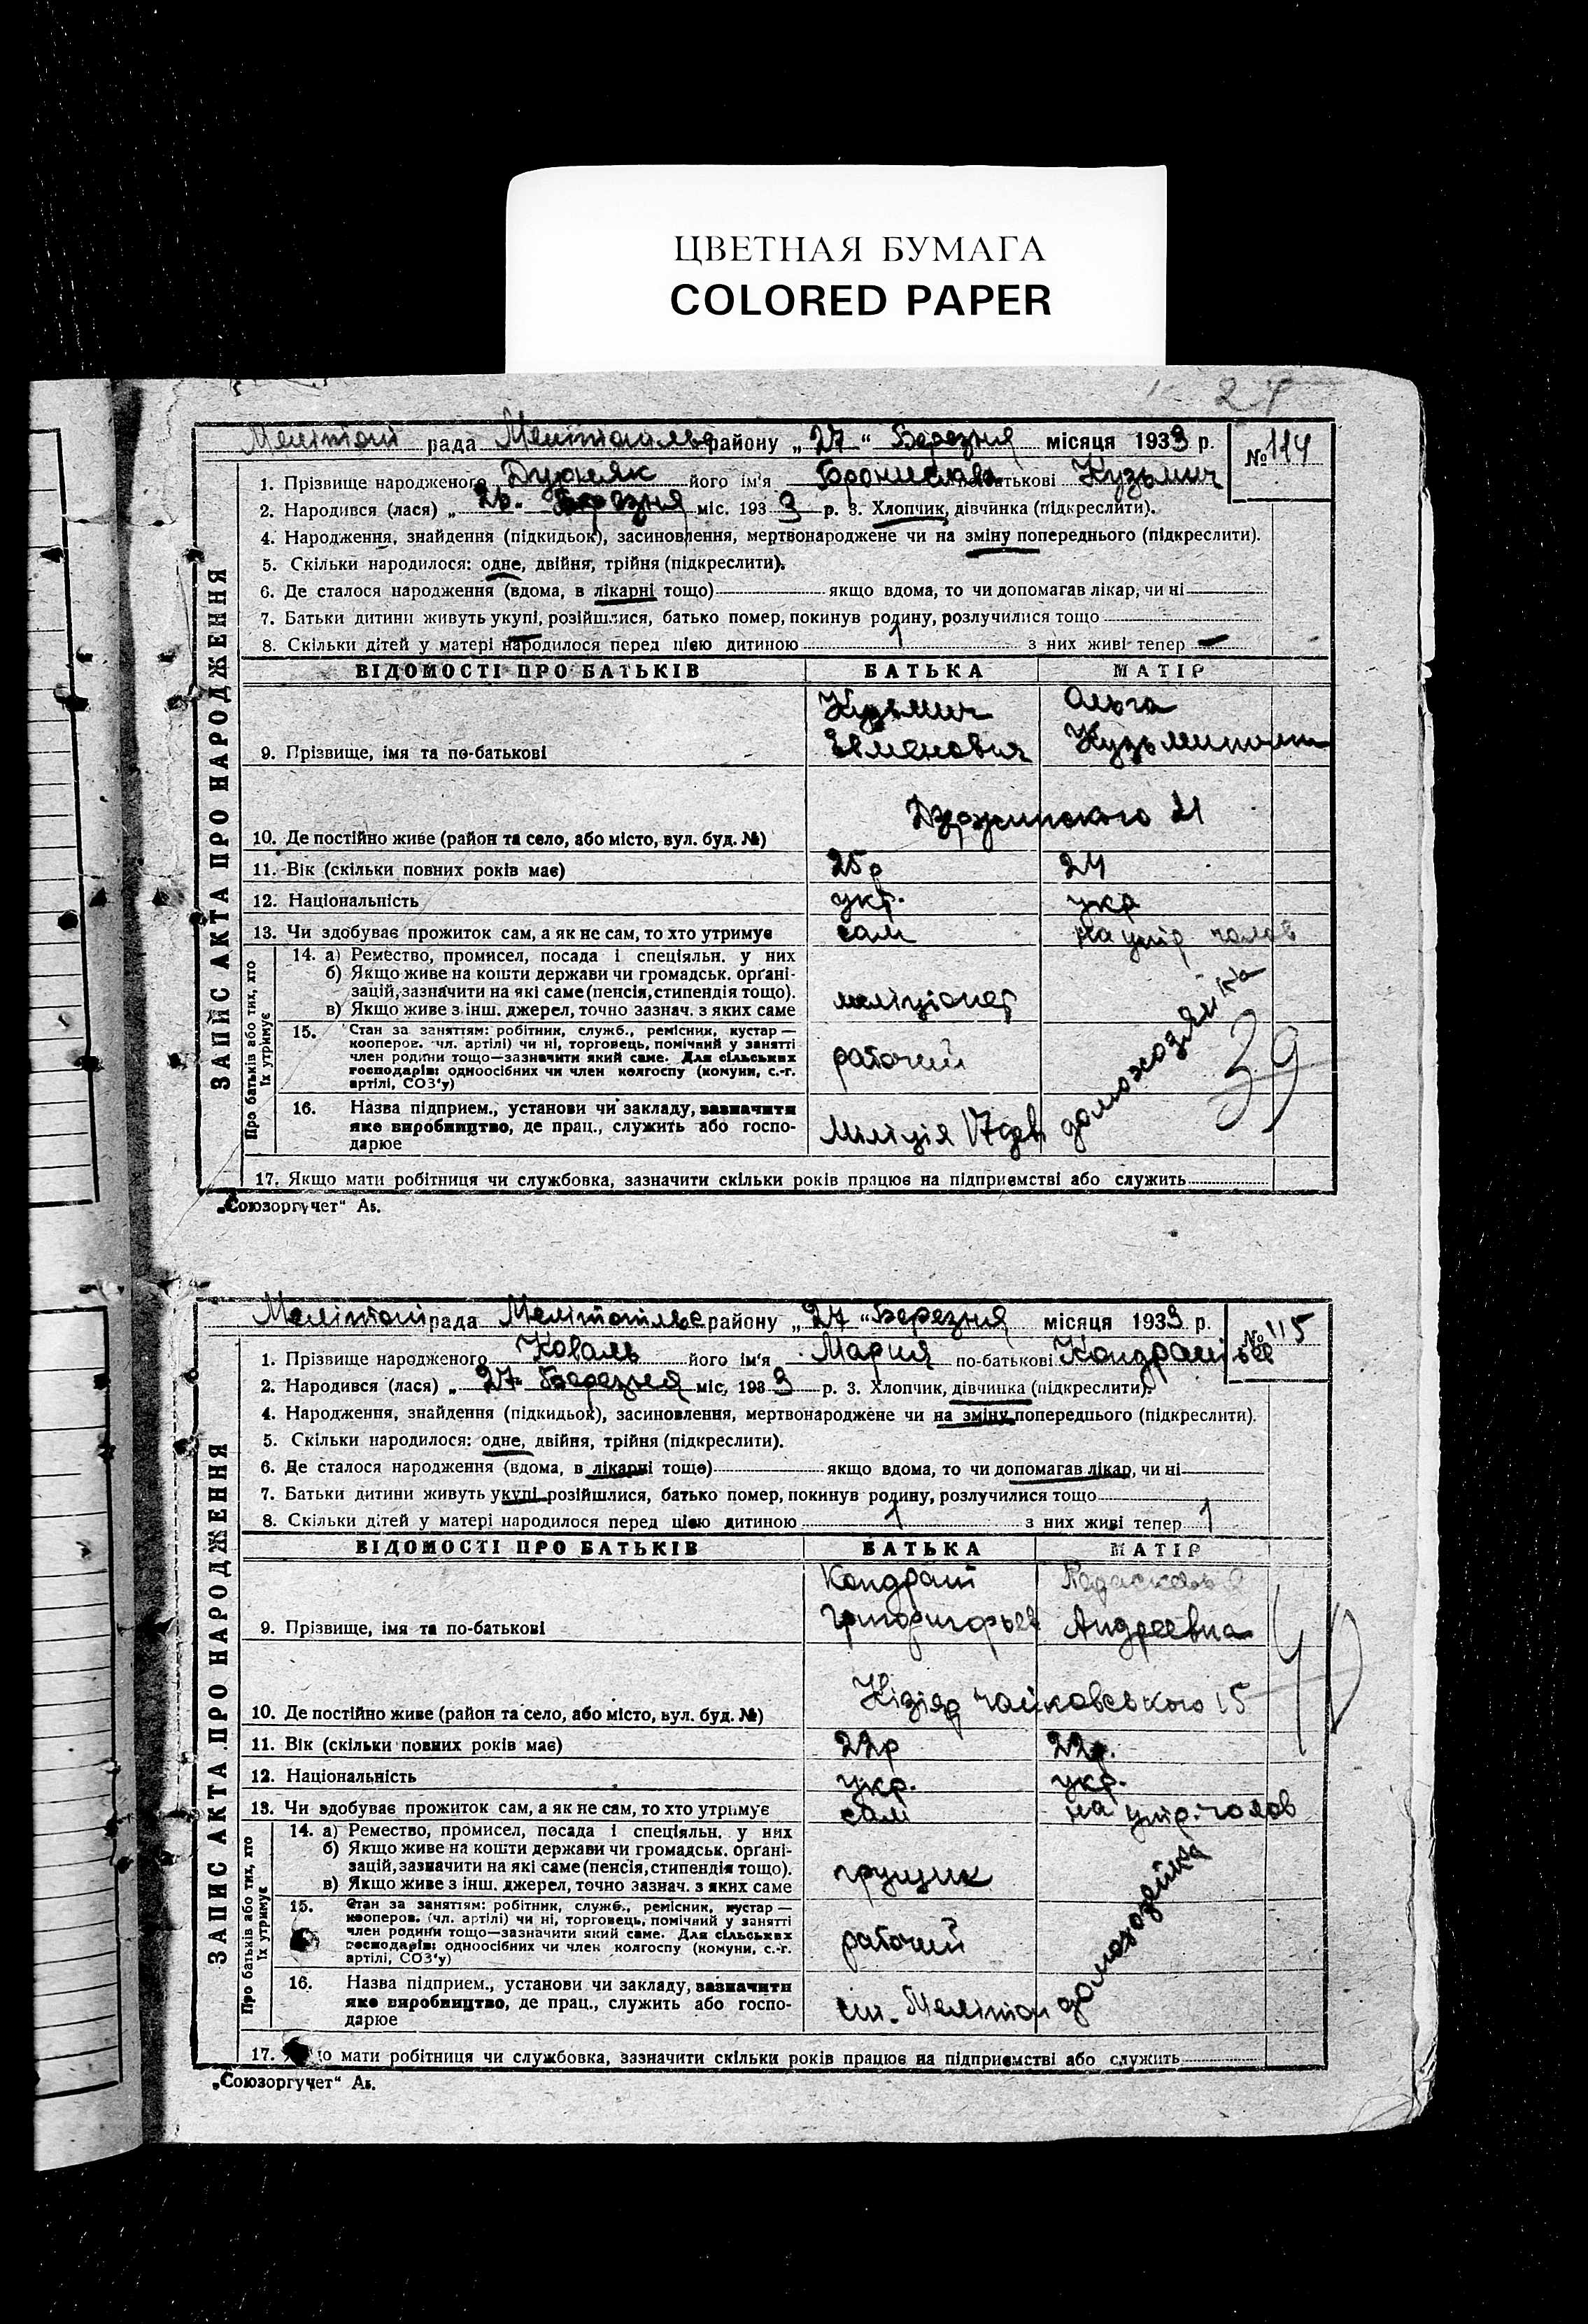 ЦВЕТНАЯ БУМАГА
COLORED PAPER
24
ЗАПИС АКТА ПРО НАРОДЖЕННЯ
Мелітоп рада Мелітопільс району „27“ Березня місяця 1933 р. № 114
1. Прізвище народженого його ім'я Бронислава по-батькові Кузьмич
2. Народився (лася) „26. Березня міс. 1933 р. 3. Хлопчик, дівчинка (підкреслити).
4. Народження, знайдення (підкидьок), засиновлення, мертвонароджене чи на зміну попереднього (підкреслити).
5. Скільки народилося: одне, двійня, трійня (підкреслити).
6. Де сталося народження (вдома, в лікарні тощо) якщо вдома, то чи допомагав лікар, чи ні
7. Батьки дитини живуть укупі, розійшлися, батько помер, покинув родину, розлучилися тощо
8. Скільки дітей у матері народилося перед цією дитиною 1 з них живі тепер —
ВІДОМОСТІ ПРО БАТЬКІВ БАТЬКА МАТІР
Кузьмич Ольга
9. Прізвище, імя та по-батькові
10. Де постійно живе (район та село, або місто, вул. буд. №) Дзержинского 21
11. Вік (скільки повних років має) 25р 24
12. Національність укр. укр
13. Чи здобуває прожиток сам, а як не сам, то хто утримує сам на утр. чолов
Про батьків або тих, хто їх утримує
14. а) Ремество, промисел, посада і спеціяльн. у них
б) Якщо живе на кошти держави чи громадськ. органі-
зацій, зазначити на які саме (пенсія, стипендія тощо).
в) Якщо живе з інш. джерел, точно зазнач. з яких саме
міліціонер
15. Стан за заняттям: робітник, служб., ремісник, кустар —
кооперов. (чл. артілі) чи ні, торговець, помічний у занятті
член родини тощо—зазначити який саме. Для сільських
господарів: одноосібних чи член колгоспу (комуни, с.-г.
артілі, СОЗ'у)
рабочий
домохозяйка
39
16. Назва підприєм., установи чи закладу, зазначити
яке виробництво, де прац., служить або госпо-
дарює
Міліція
17. Якщо мати робітниця чи службовка, зазначити скільки років працює на підприємстві або служить
„Союзоргучет“ А5.
ЗАПИС АКТА ПРО НАРОДЖЕННЯ
Мелітоп рада Мелітопільс району „27“ Березня місяця 1933 р. № 115
1. Прізвище народженого Коваль його ім'я Мария по-батькові Кондратьев
2. Народився (лася) „27. Березня міс. 1933 р. 3. Хлопчик, дівчинка (підкреслити).
4. Народження, знайдення (підкидьок), засиновлення, мертвонароджене чи на зміну попереднього (підкреслити).
5. Скільки народилося: одне, двійня, трійня (підкреслити).
6. Де сталося народження (вдома, в лікарні тощо) якщо вдома, то чи допомагав лікар, чи ні
7. Батьки дитини живуть укупі розійшлися, батько помер, покинув родину, розлучилися тощо
8. Скільки дітей у матері народилося перед цією дитиною 1 з них живі тепер 1
ВІДОМОСТІ ПРО БАТЬКІВ БАТЬКА МАТІР
Кондрат
9. Прізвище, імя та по-батькові Андреевна
40
10. Де постійно живе (район та село, або місто, вул. буд. №) Кізіяр чайковського 15
11. Вік (скільки повних років має) 22р 22р.
12. Національність укр. укр.
13. Чи здобуває прожиток сам, а як не сам, то хто утримує сам на утр. чолов
Про батьків або тих, хто їх утримує
14. а) Ремество, промисел, посада і спеціяльн. у них
б) Якщо живе на кошти держави чи громадськ. органі-
зацій, зазначити на які саме (пенсія, стипендія тощо).
в) Якщо живе з інш. джерел, точно зазнач. з яких саме
грущик
15. Стан за заняттям: робітник, служб., ремісник, кустар —
кооперов. (чл. артілі) чи ні, торговець, помічний у занятті
член родини тощо—зазначити який саме. Для сільських
господарів: одноосібних чи член колгоспу (комуни, с.-г.
артілі, СОЗ'у)
рабочий
домохозяйка
16. Назва підприєм., установи чи закладу, зазначити
яке виробництво, де прац., служить або госпо-
дарює
ст. Мелітоп
17. мати робітниця чи службовка, зазначити скільки років працює на підприємстві або служить
„Союзоргучет“ А5.